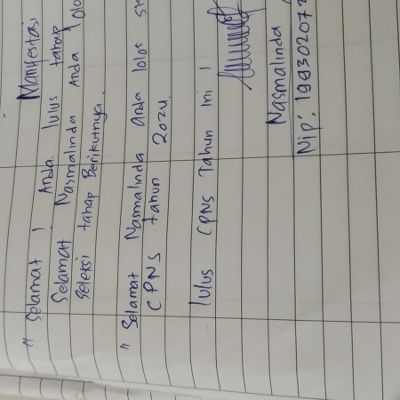 Manifestasi
" Selamat ! Anda lulus tahap
Selamat Nasmalinda Anda lolo
seleksi tahap Berikutnya.
" Selamat Nasmalinda anda lolos
CPNS tahun 2024
lulus CPNS Tahun ini !
Nasmalinda
Nip: 199302072